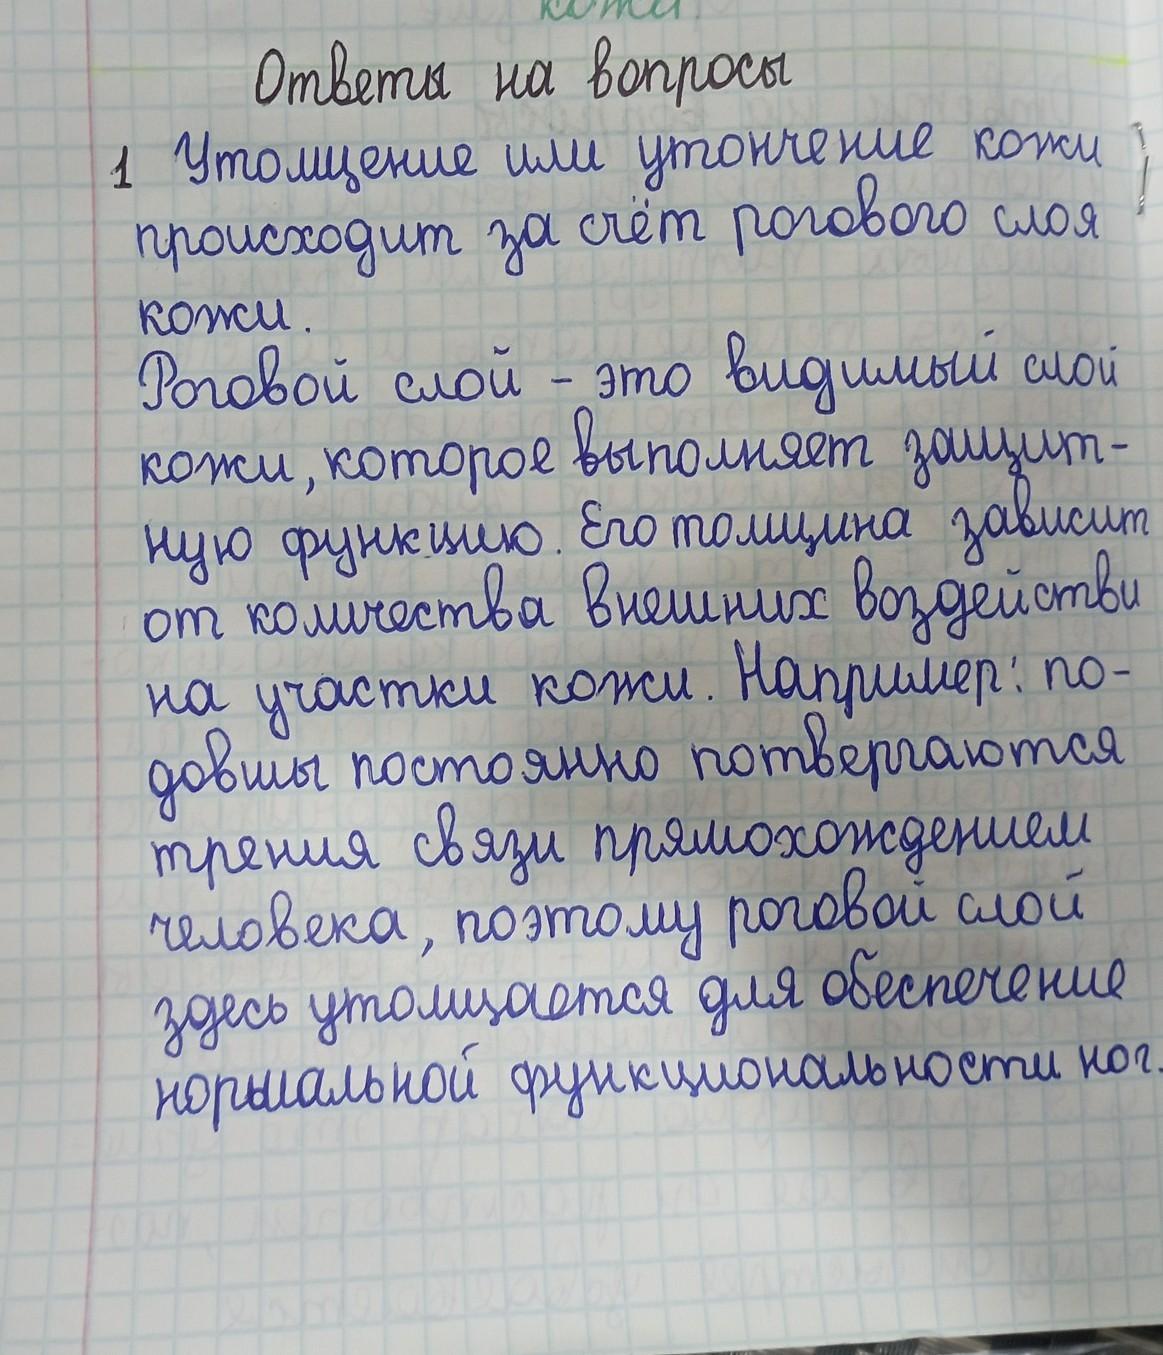 кожи
Ответы на вопросы
1 Утолщение или утончение кожи
происходит за счёт рогового слоя
кожи.
Роговой слой - это видимый слой
кожи, которое выполняет защит-
ную функцию. Его толщина зависит
от количества внешних воздействи
на участки кожи. Например: по-
довшы постоянно потвергаются
трения связи прямохождением
человека, поэтому роговой слой
здесь утолщается для обеспечение
нормальной функциональности ног.